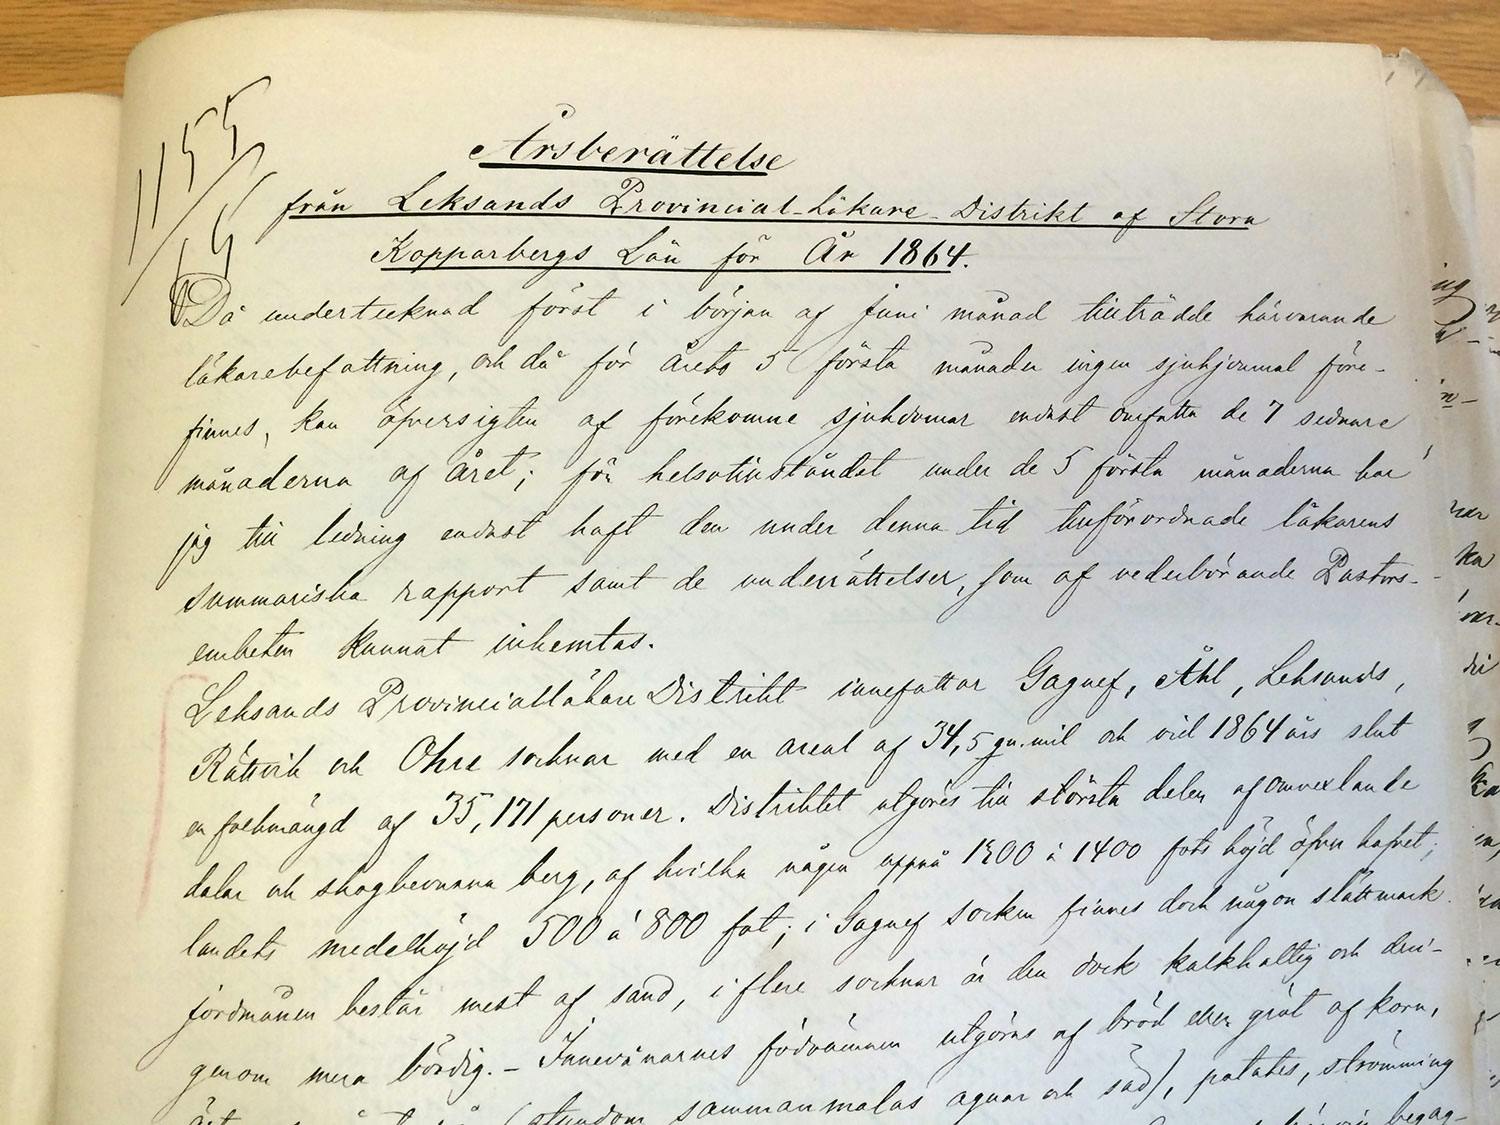 1155
64
Årsberättelse
från Leksands Provincial-Läkare-Distrikt af Stora
Kopparbergs Län för År 1864.
Då undertecknad först i början af Juni månad tillträdde härvarande
läkarebefattning, och då för årets 5 första månader ingen sjukjournal före-
finnes, kan öfversigten af förekomne sjukdomar endast omfatta de 7 sednare
månaderna af året; för helsotillståndet under de 5 första månaderna har
jag till ledning endast haft den under denna tid tillförordnade läkarens
summariska rapport samt de underrättelser, som af vederbörande Pastors-
embeten kunnat inhemtas.
Leksands Provincialläkare Distrikt innefattar Gagnef, Åhl, Leksands,
Rättvik och Ohre socknar med en areal af 34,5 qu.mil och vid 1864 års slut
en folkmängd af 35,171 personer. Distriktet utgöres till största delen af omvexlande
dalar och skogbevuxna berg, af hvilka några uppnå 1200 à 1400 fots höjd öfver hafvet;
landets medelhöjd 500 à 800 fot; i Gagnef socken finnes dock någon slättmark.
jordmånen består mest af sand, i flere socknar är den dock kalkhaltig och deri-
genom mera bördig. - Innevånarnes födoämnen utgöras af bröd eller gröt af korn,
(stundom sammanmalas agnar och säd), potates, strömming
begag-